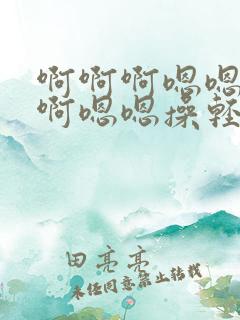 啊啊啊嗯嗯
啊嗯嗯操轻
田亮亮
未经同意禁止转载